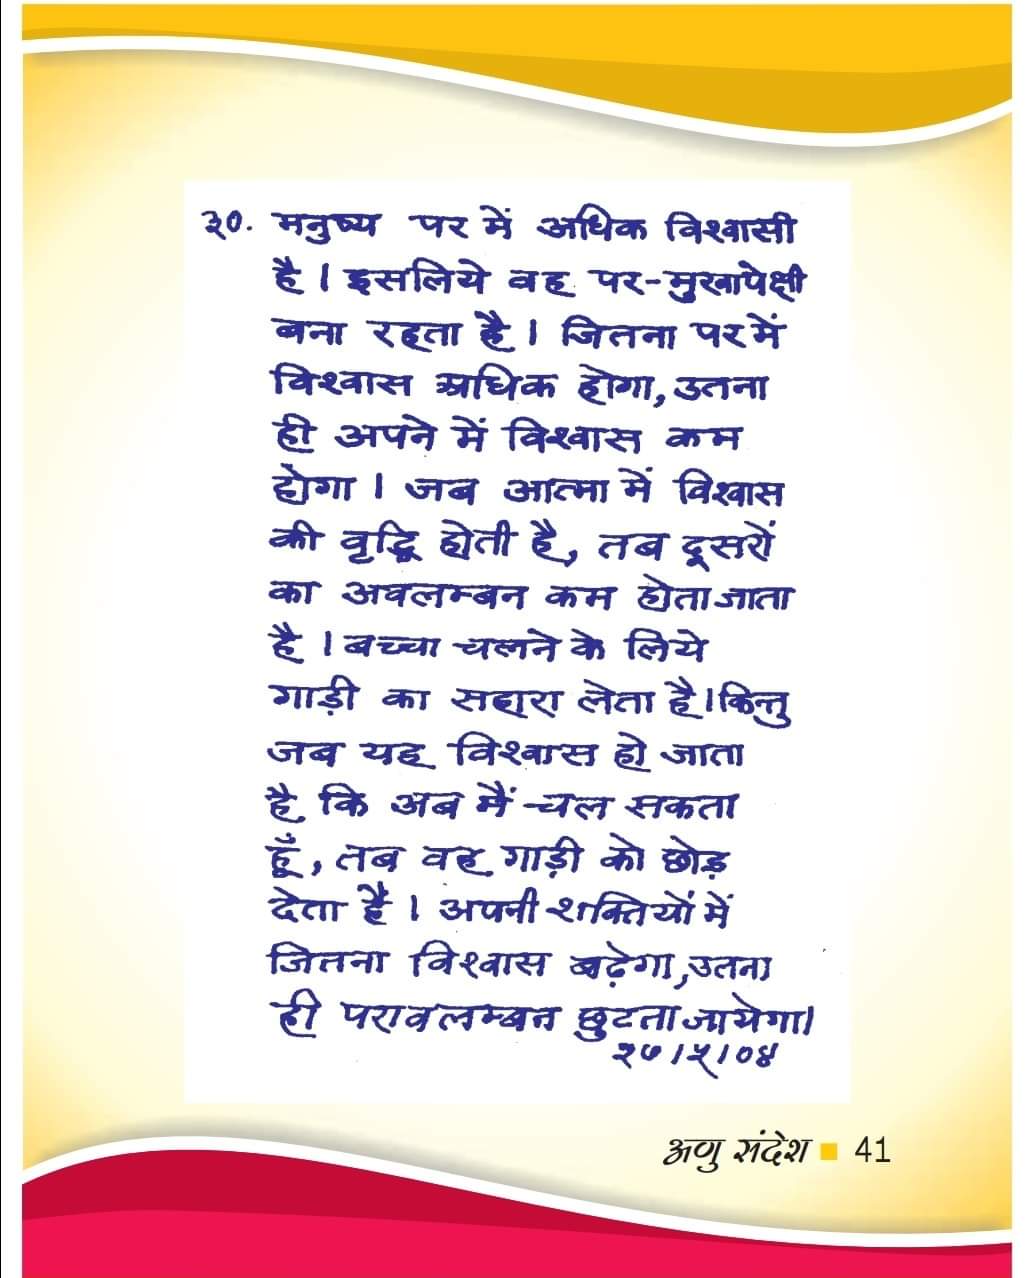 ३०. मनुष्य पर में अधिक विश्वासी
है । इसलिये वह पर-मुखापेक्षी
बना रहता है । जितना पर में
विश्वास अधिक होगा, उतना
ही अपने में विश्वास कम
होगा । जब आत्मा में विश्वास
की वृद्धि होती है, तब दूसरों
का अवलम्बन कम होता जाता
है । बच्चा चलने के लिये
गाड़ी का सहारा लेता है । किन्तु
जब यह विश्वास हो जाता
है कि अब मैं चल सकता
हूँ, तब वह गाड़ी को छोड़
देता है । अपनी शक्तियों में
जितना विश्वास बढ़ेगा, उतना
ही परावलम्बन छुटता जायेगा।
२७।५।०४
अणु संदेश 41